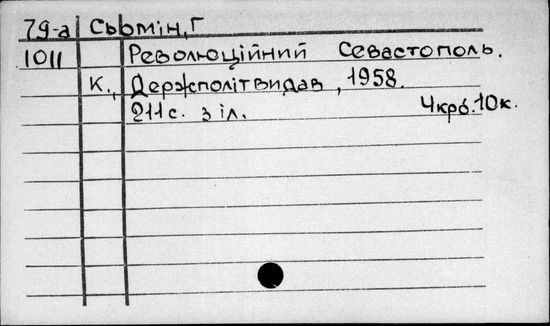 79-а Сьомін, Г
1011 Революційний Севастополь.
К., Держполітвидав, 1958.
211с. з іл. 4крб.10к.